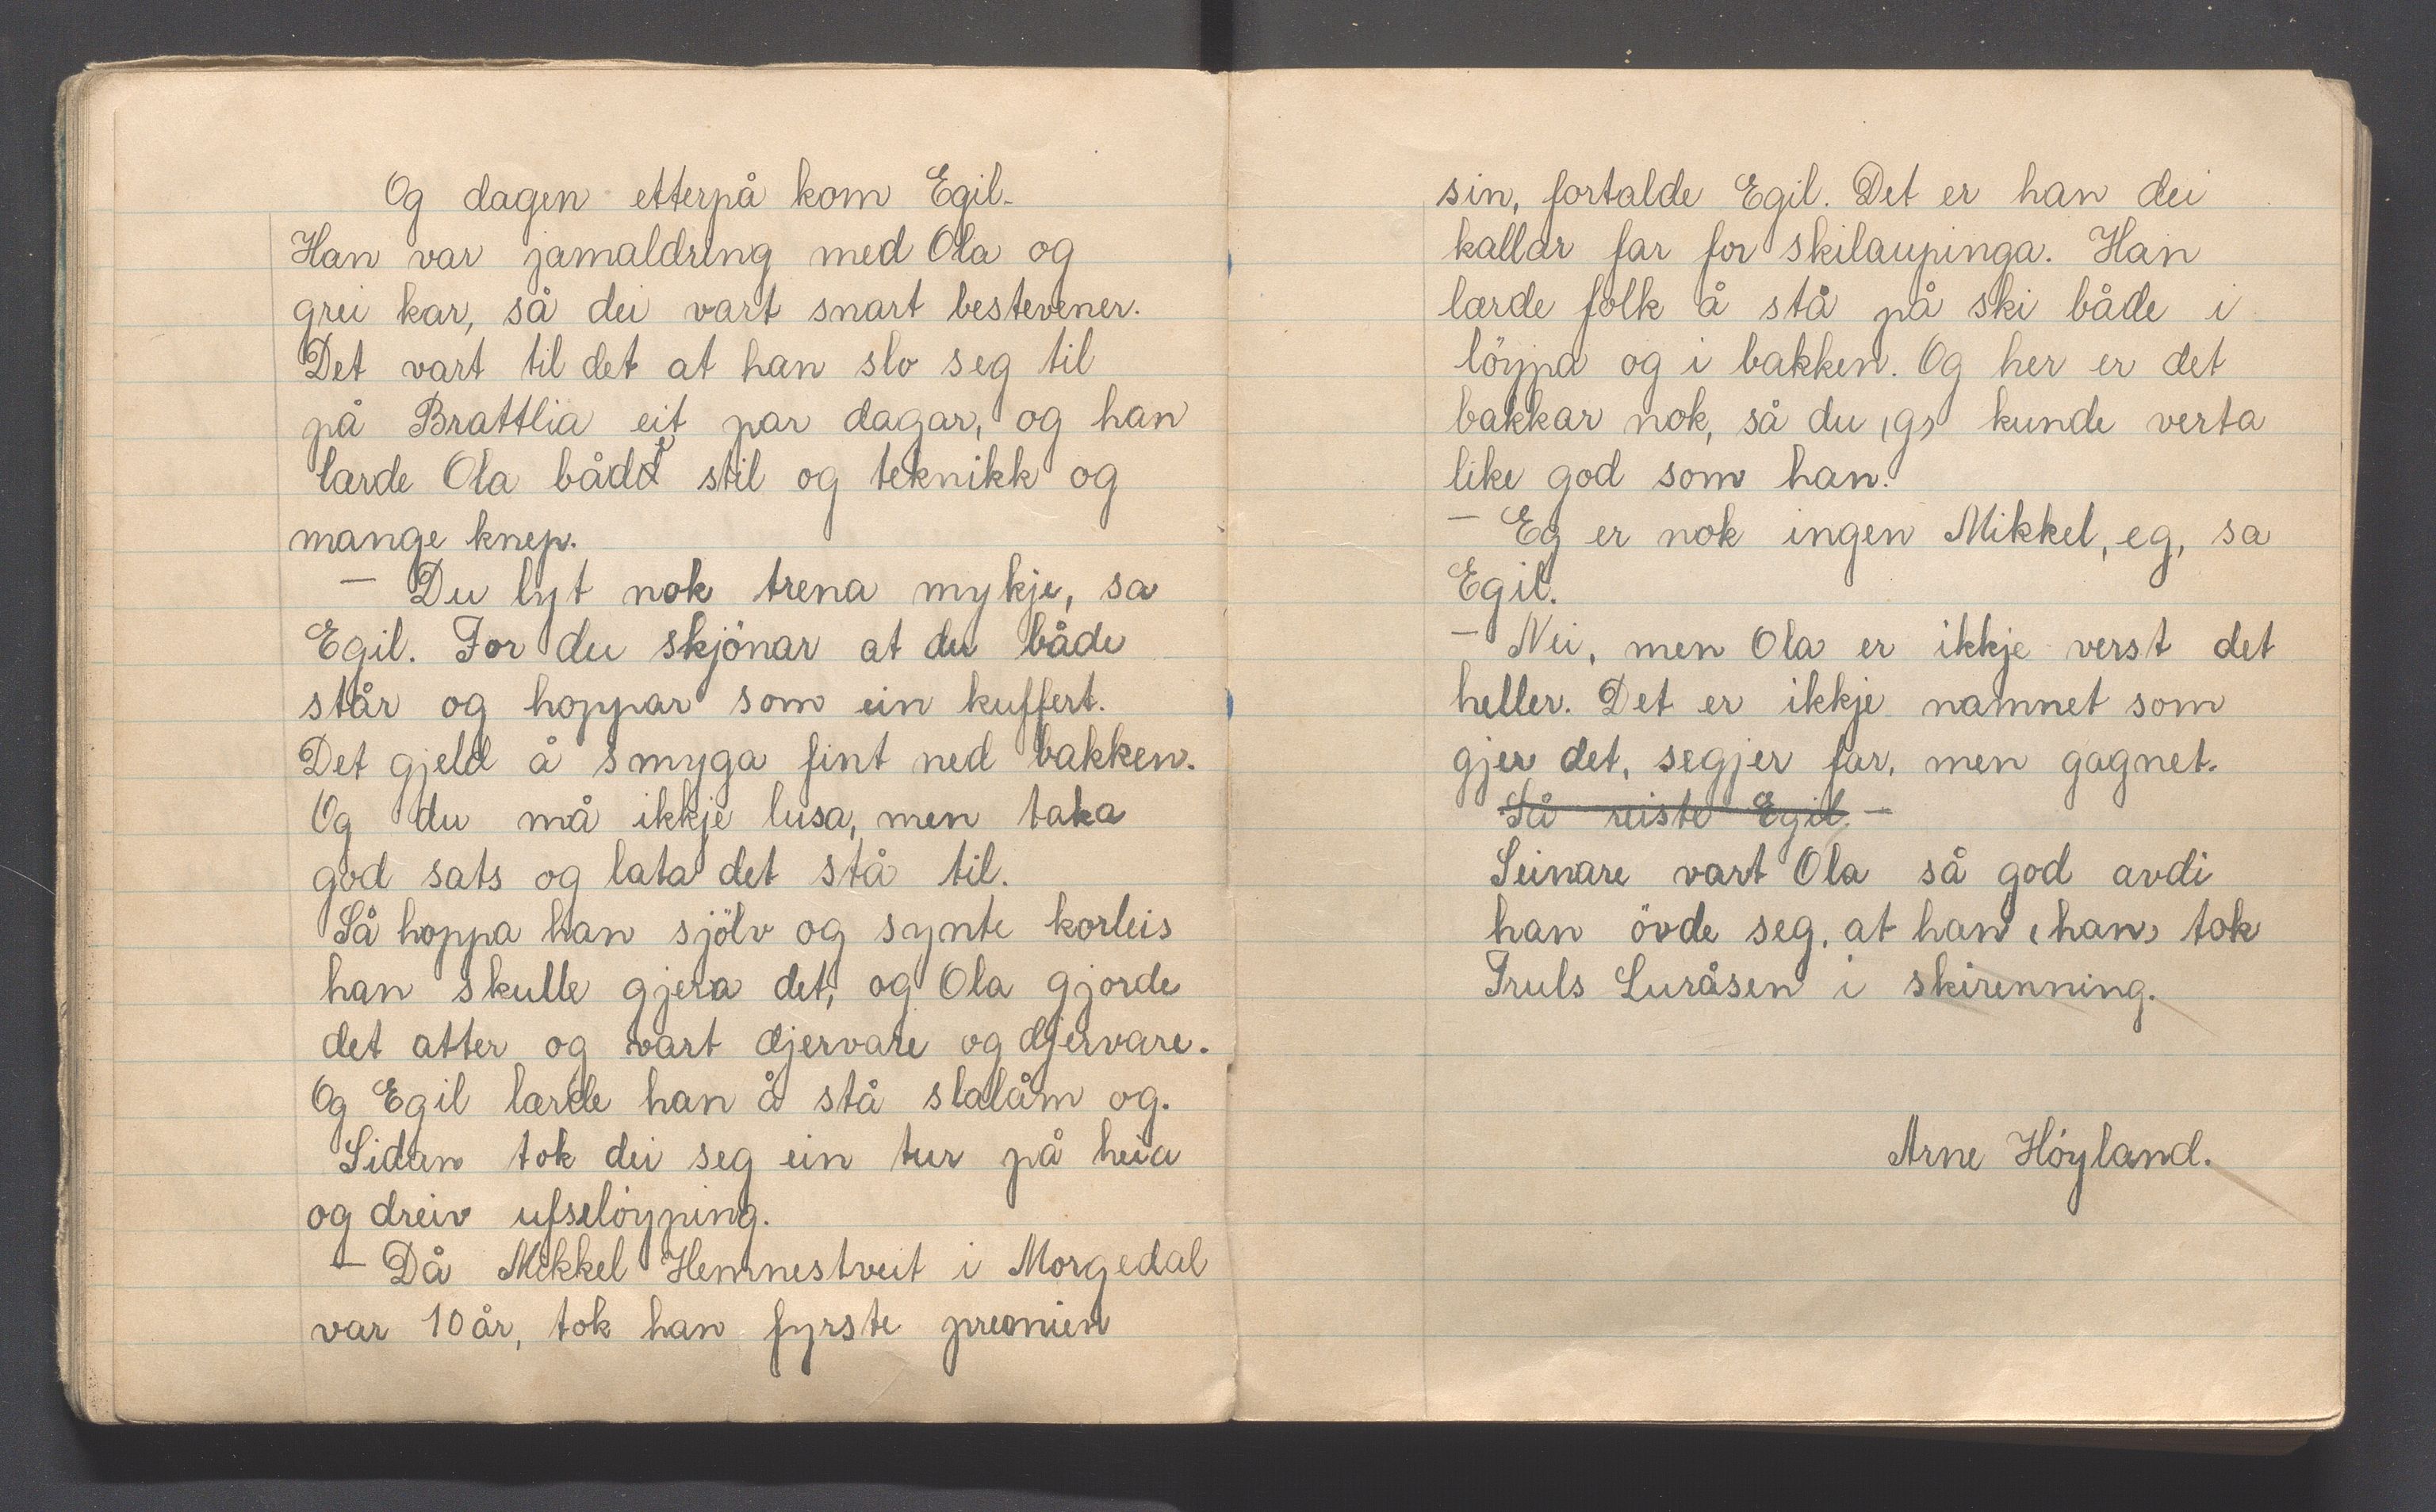 Og dagen etterpå kom Egil.
Han var jamaldring med Ola og
grei kar, så dei vart snart bestevener.
Det vart til det at han slo seg til
på Brattlia eit par dagar, og han
lærde Ola både stil og teknikk og
mange knep.
— Du lyt nok trena mykje, sa
Egil. For du skjönar at du både
står og hoppar som ein kuffert.
Det gjeld å smyga fint ned bakken.
Og du må ikkje lusa, men taka
god sats og lata det stå til.
Så hoppa han sjölv og synte korleis
han skulle gjera det, og Ola gjorde
det atter og vart djervare og djervare.
Og Egil lærde han å stå slalåm og.
Sidan tok dei seg ein tur på heia
og dreiv ufselöyping.
— Då Mikkel Hemnestveit i Morgedal
var 10 år, tok han fyrste premien
sin, fortalde Egil. Det er han dei
kallar far for skilaupinga. Han
lærde folk å stå på ski både i
löypa og i bakken. Og her er det
bakkar nok, så du (g) kunde verta
like god som han.
— Eg er nok ingen Mikkel, eg, sa
Egil.
— Nei, men Ola er ikkje verst det
heller. Det er ikkje namnet som
gjer det, segjer far, men gagnet.
Så reiste Egil. —
Seinare vart Ola så god avdi
han övde seg, at han (han) tok
Truls Luråsen i skirenning.
Arne Höyland.